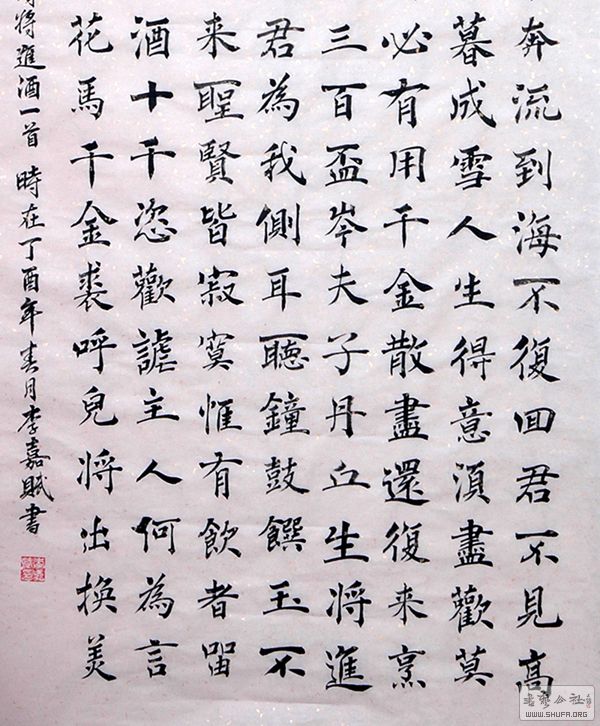 奔流到海不復回君不見高
暮成雪人生得意須盡歡莫
必有用千金散盡還復来烹
三百盃岑夫子丹丘生将進
君為我側耳聴鐘鼓饌玉不
来聖賢皆寂寞惟有飲者留
酒十千恣歡謔主人何為言
花馬千金裘呼兒将出換美
将進酒一首 時在丁酉年春月李嘉賦書
書藝公社
WWW.SHUFA.ORG